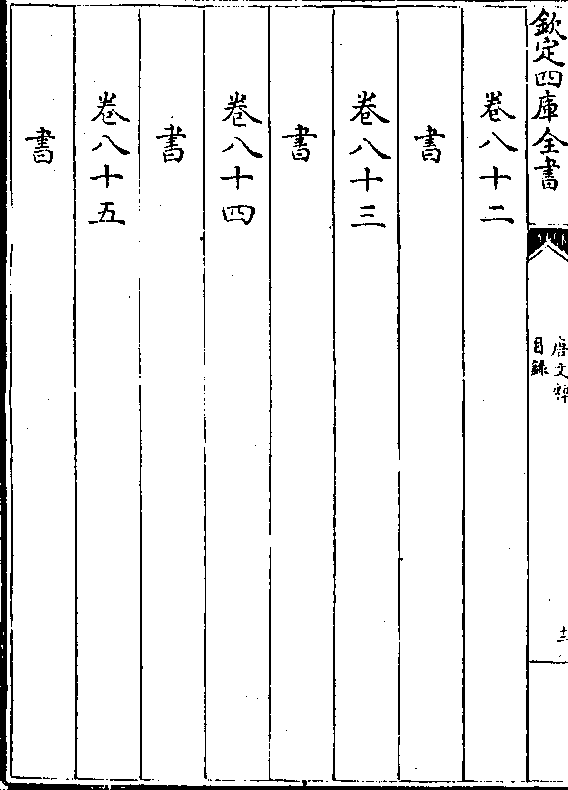 欽定四庫全書
唐文粹
目錄
卷八十二
書
卷八十三
書
卷八十四
書
卷八十五
書